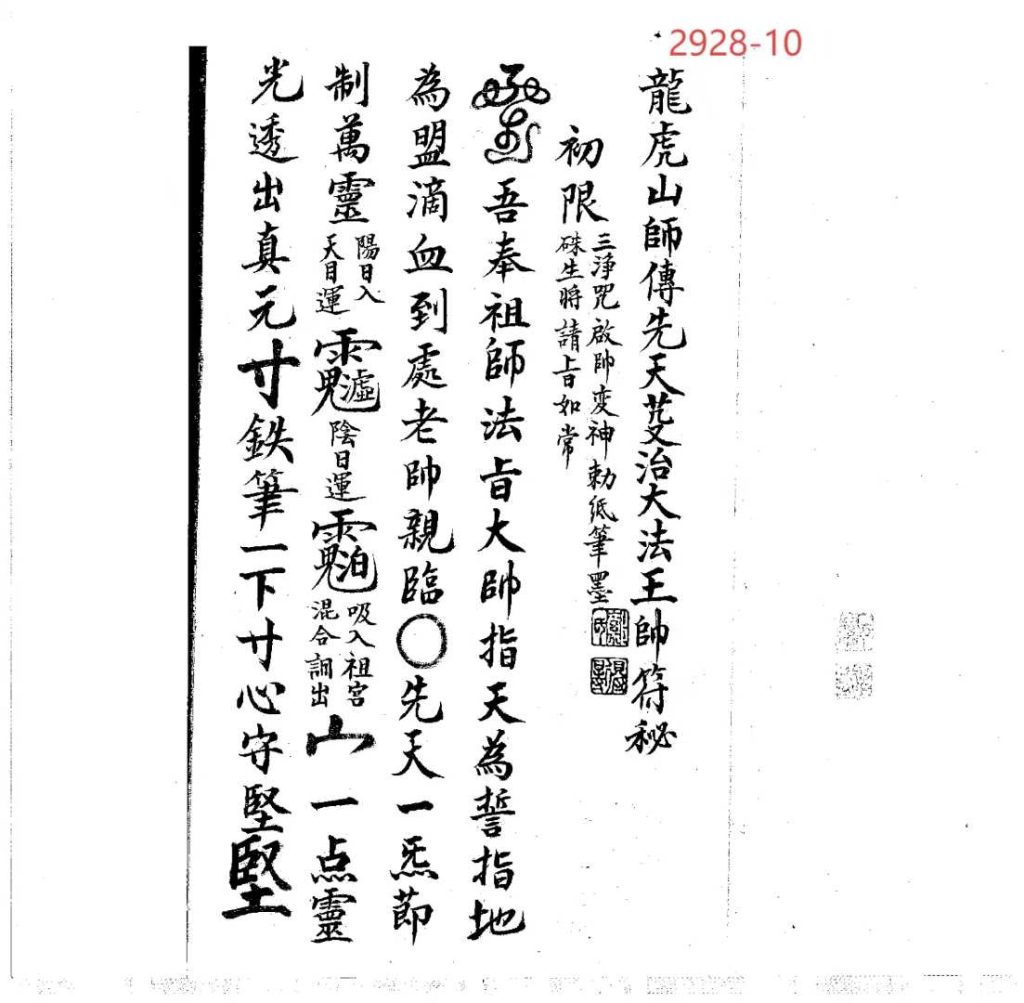 2928-10
龍虎山師傳先天芟治大法王帥符秘
初限
三淨咒啟帥變神勅紙筆墨
硃生將請旨如常
吾奉祖師法旨大帥指天為誓指地
為盟滴血到處老帥親臨〇先天一炁節
制萬靈
陽日入
天目運
陰日運
吸入祖宮
混合調出
山一点靈
光透出真元寸鉄筆一下寸心守堅堅